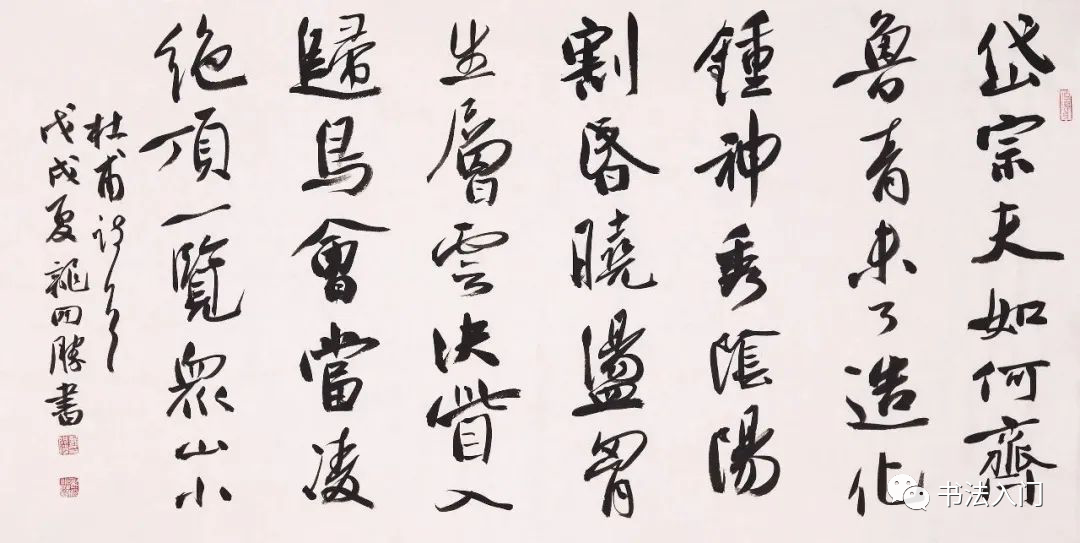 岱宗夫如何齊
魯青未了造化
鍾神秀陰陽
割昏曉盪胷
生層雲決眥入
歸鳥會當凌
絕頂一覽眾山小
杜甫詩一首
戊戌夏龍四勝書
书法入门